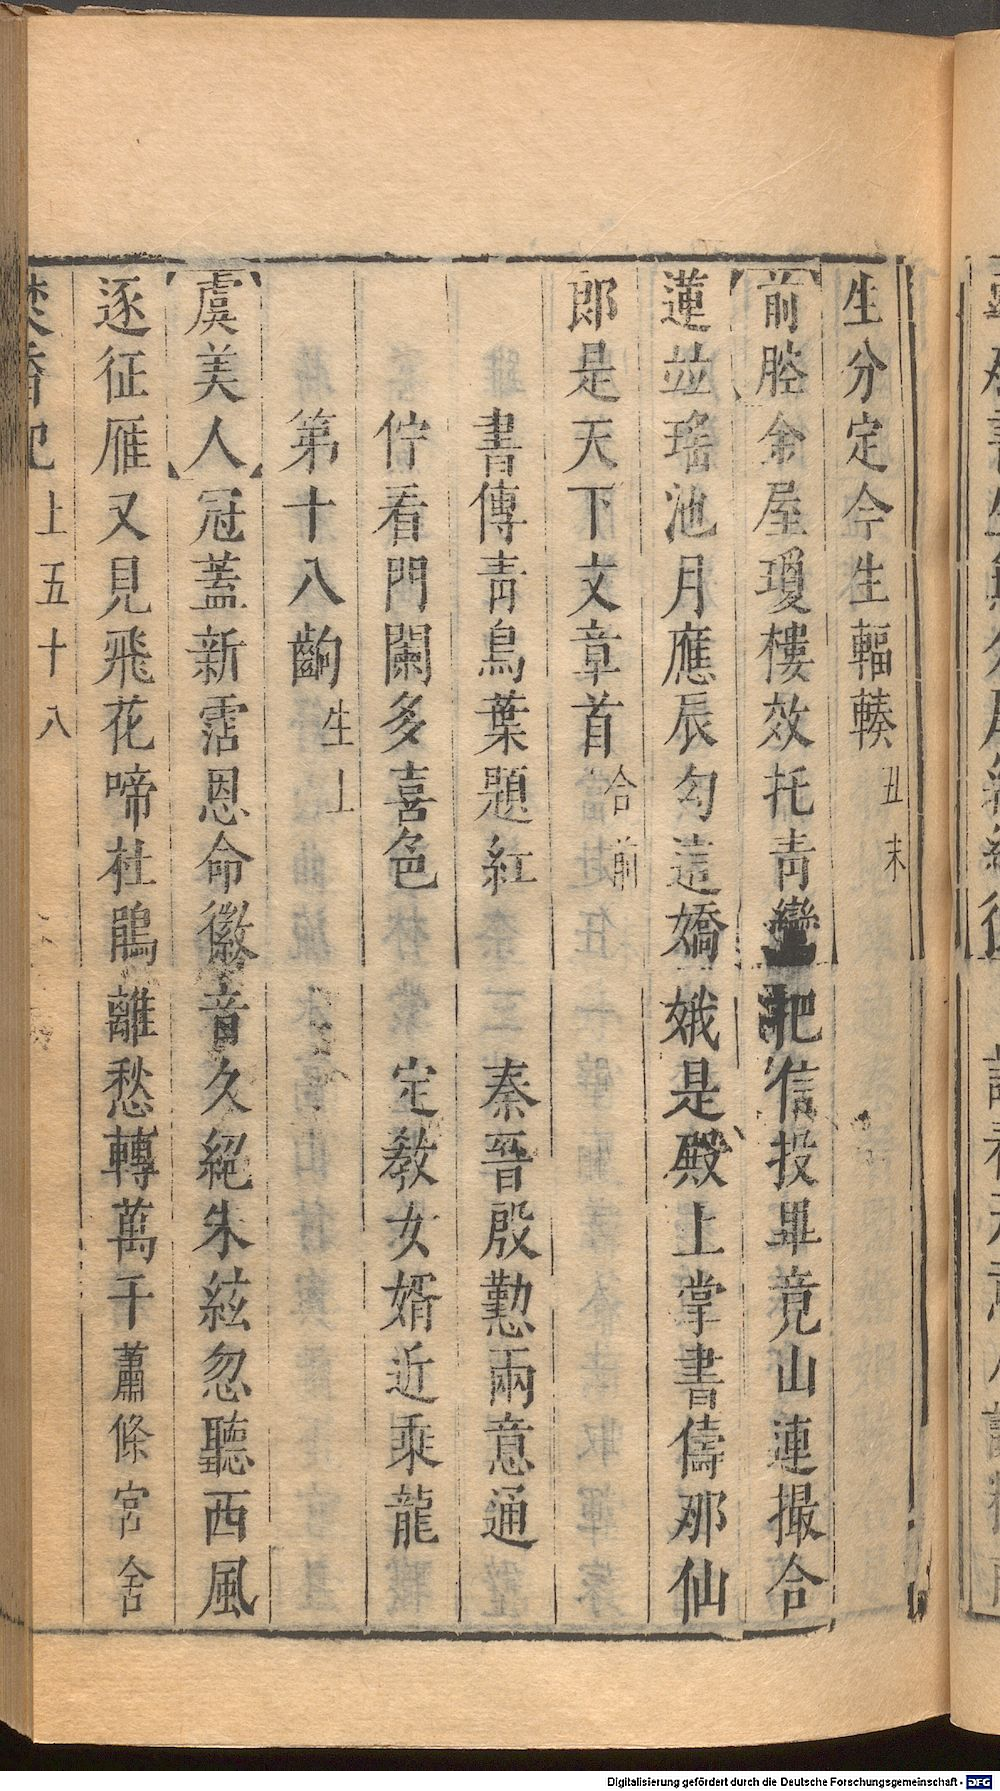 生分定今生輻輳丑末
前腔金屋瓊樓效托青鸞把信投畢竟山連撮合
蓮並瑤池月應辰勾這嬌娥是殿上掌書儔那仙
郎是天下文章首合前
書傳青鳥葉題紅 秦晉殷懃兩意通
佇看門闌多喜色 定教女婿近乘龍
第十八齣生上
虞美人冠蓋新霑恩命徽音久絕朱絃忽聽西風
逐征雁又見飛花啼杜鵑離愁轉萬千蕭條宮舍
焚香記 上五十八
Digitalisierung gefördert durch die Deutsche Forschungsgemeinschaft - DFG